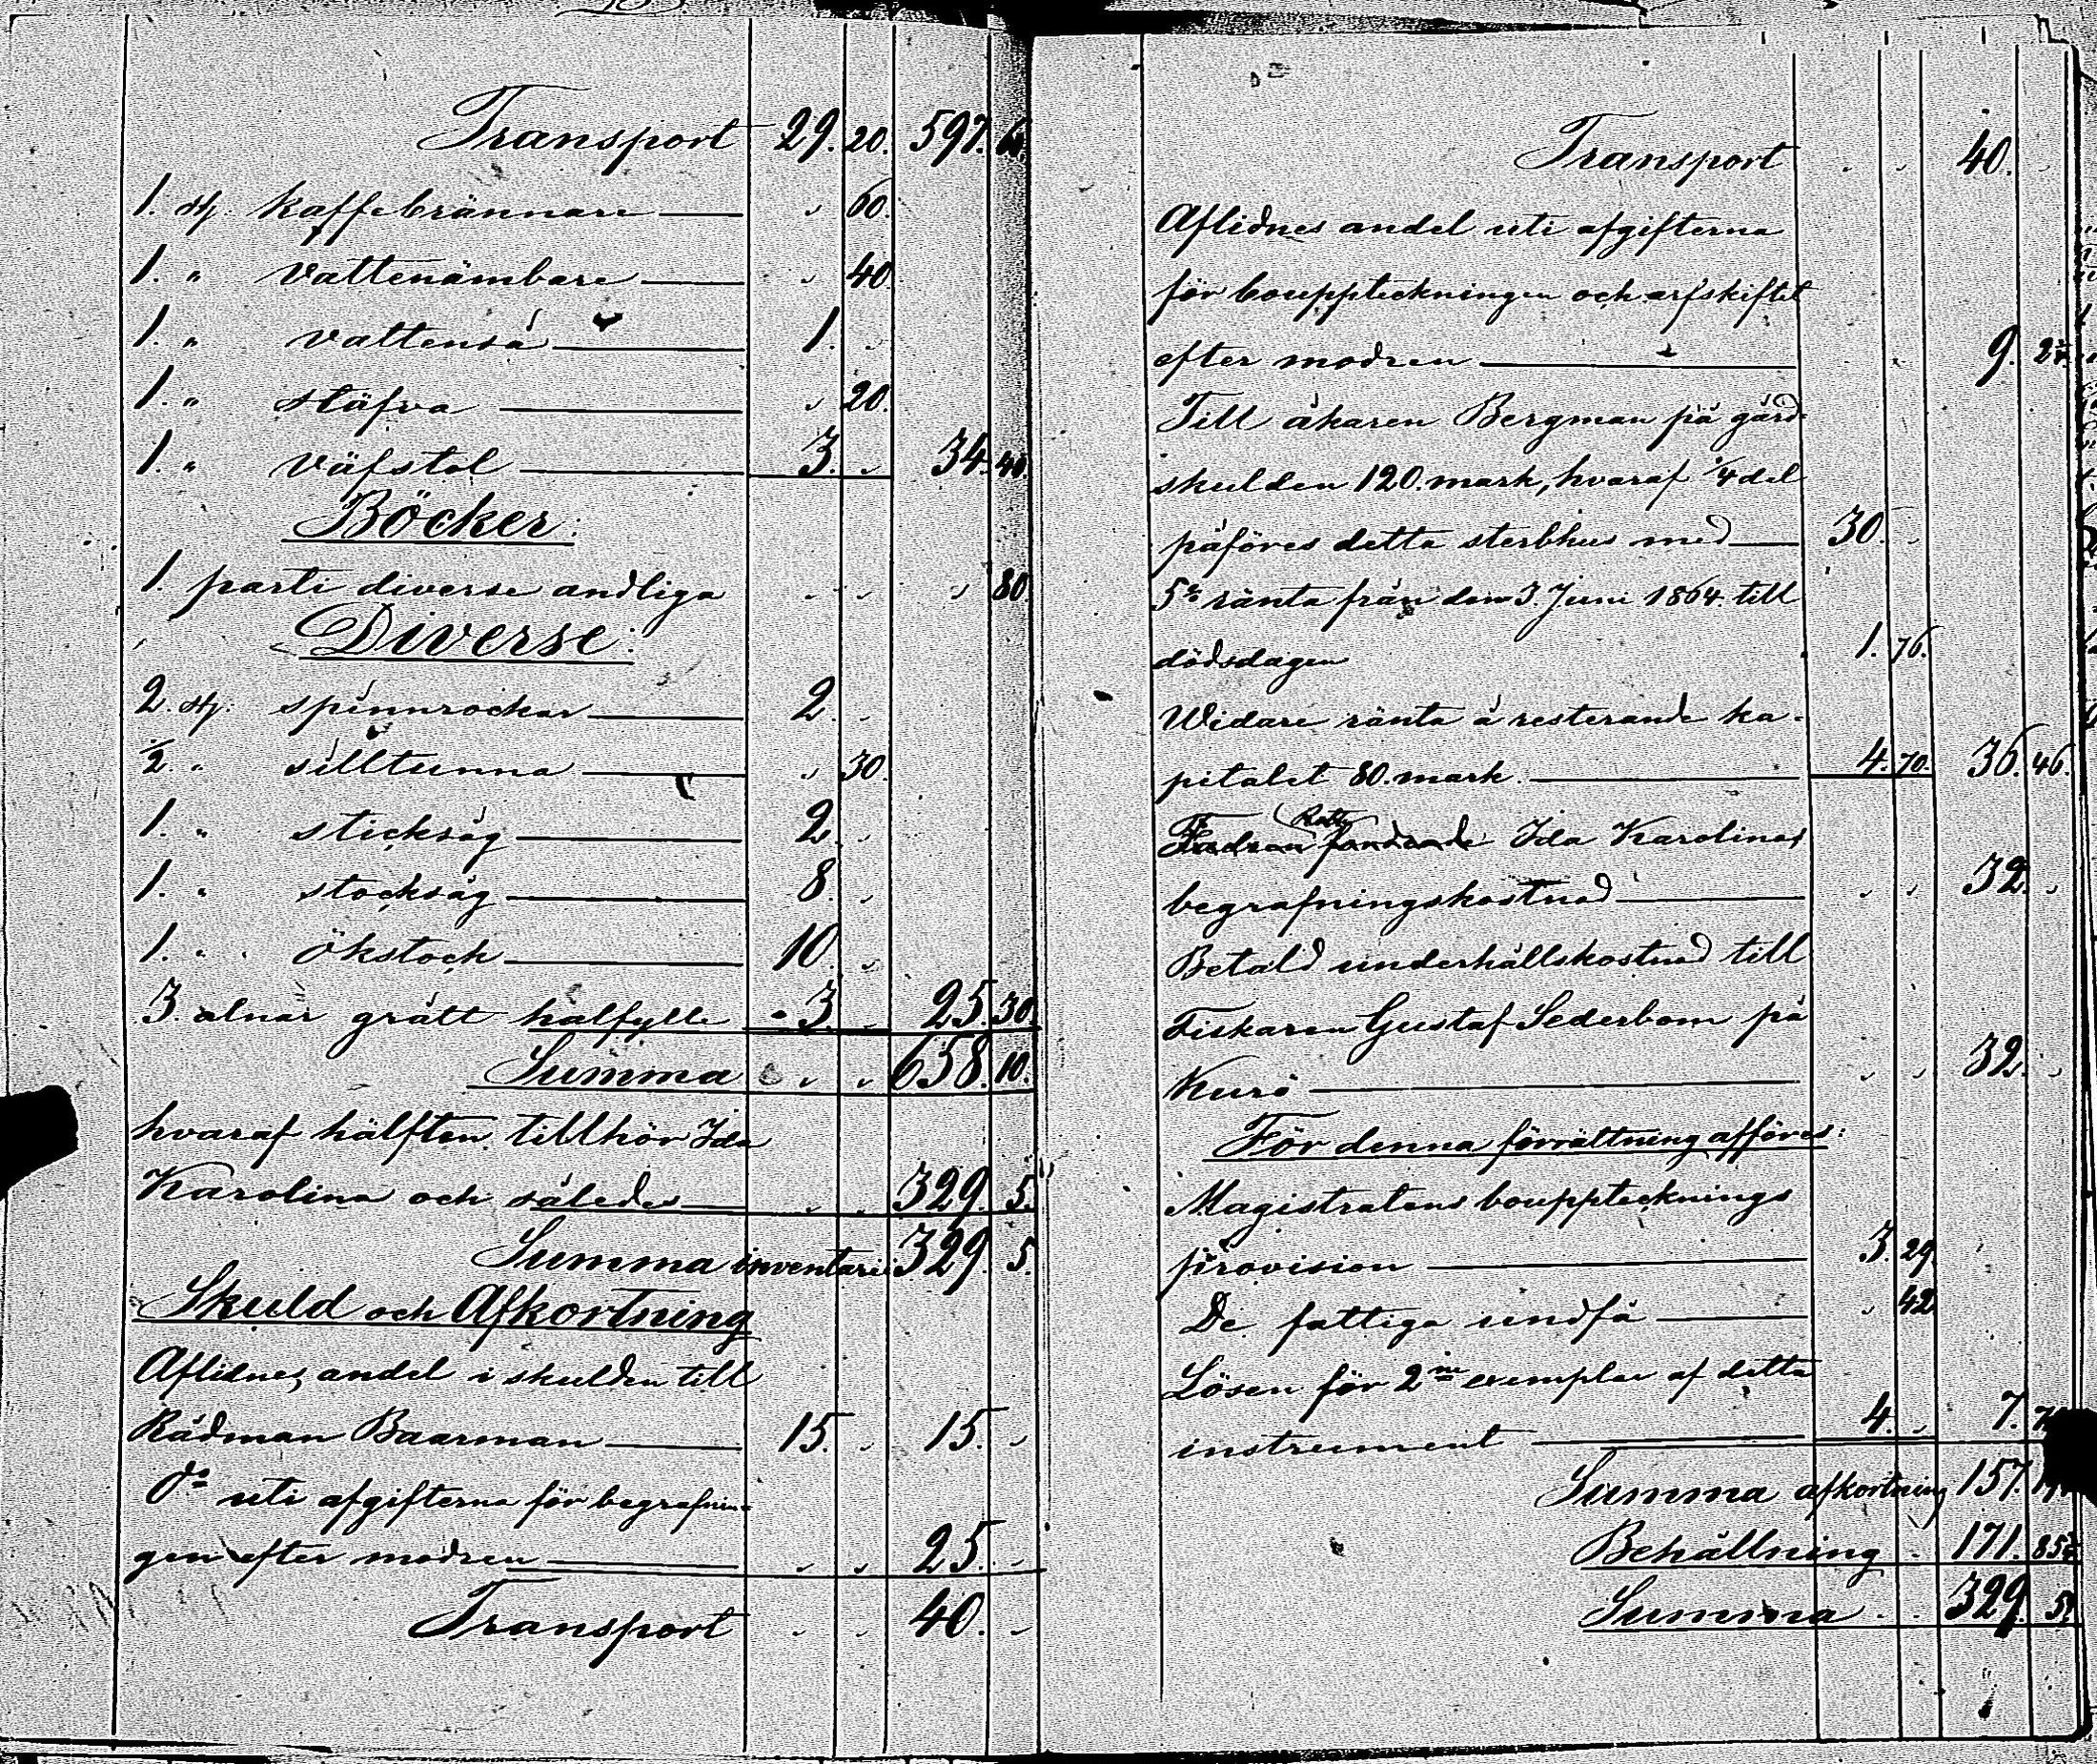 Transport 29. 20. 597. 60
1. st. kaffebrännare — „ 60.
1. „ vattenämbare — „ 40
1. „ vattenså — 1. „
1. „ stäfva — „ 20.
1. „ väfstol — 3. „ 34. 40.
Böcker:
1. parti diverse andliga „ „ „ 80
Diverse:
2. st. spinnrockar — 2. „
1/2. „ silltunna — „ 30.
1. „ sticksåg — 2. „
1. „ stocksåg — 8. „
1. „ ökstock — 10. „
3. alnar grått halfylle 3. „ 25. 30
Summa „ „ 658. 10.
hvaraf hälften tillhör Ida
Karolina och således — „ „ 329. 5.
Summa inventarii 329. 5.
Skuld och Afkortning
Aflidnes andel i skulden till
Rådman Baarman — 15. „ 15. „
do uti afgifterna för begrafnin-
gen efter modren — „ „ 25. „
Transport „ „ 40. „
Transport „ „ 40. „
Aflidnes andel uti afgifterna
för bouppteckningen och arfskiftet
efter modren — 9.
Till åkaren Bergman på gård-
skulden 120. mark, hvaraf 1/4 del
påföres detta sterbhus med — 30. „
5% ränta från den 3. Juni 1864. till
dödsdagen 1. 76.
Widare ränta å resterande ka-
pitalet 80. mark. — 4. 70. 36. 46.
Ida Karolinas
begrafningskostnad — „ „ 32. „
Betald underhållskostnad till
Fiskaren Gustaf Sederbom på
Kurö — „ „ 32. „
För denna förrättning afföres:
Magistratens boupptecknings
provision — 3. 29.
De fattiga undfå — „ 42
Lösen för 2ne exemplar af detta
instrument — 4. „ 7.
Summa afkortning 157.
Behållning „ 171. 85
Summa „ „ 329. 5.